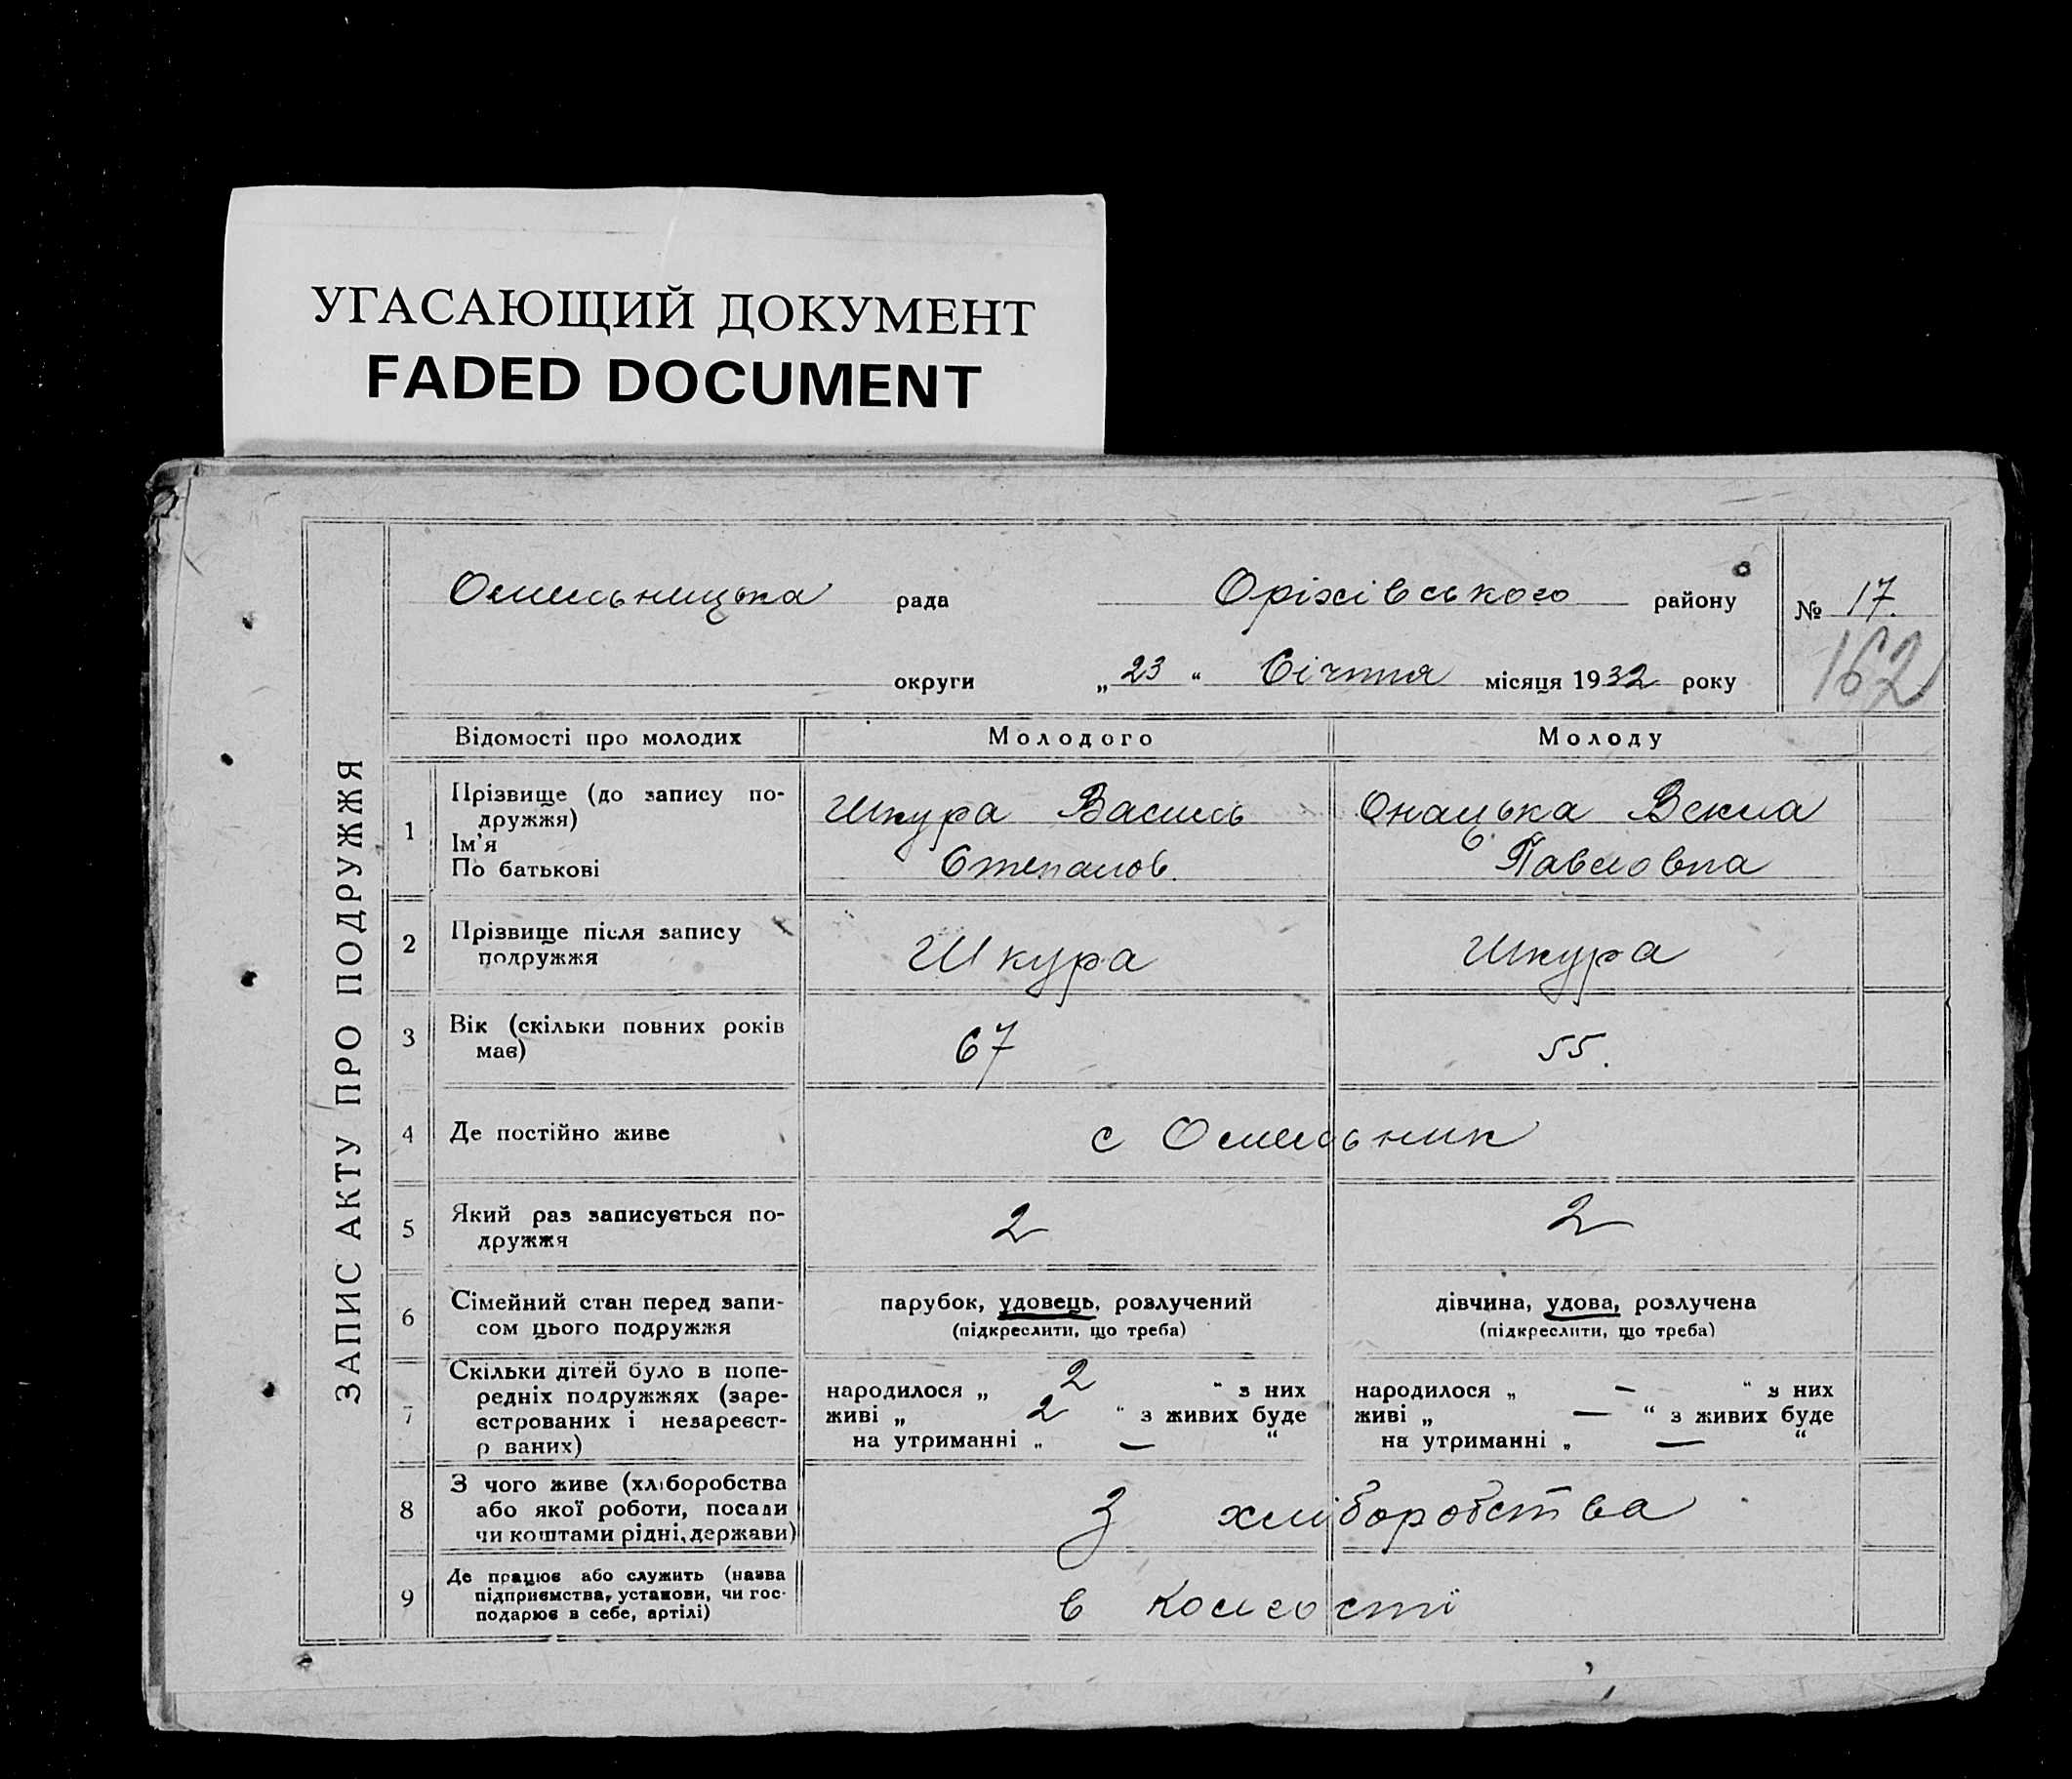 УГАСАЮЩИЙ ДОКУМЕНТ
FADED DOCUMENT
ЗАПИС АКТУ ПРО ПОДРУЖЖЯ
Омельницька рада Оріхівського району № 17.
округи „ 23 “ Січння місяця 1932 року 162
Відомості про молодих Молодого Молоду
1 Прізвище (до запису по-
дружжя)
Ім’я
По батькові
Шкура Василь
Степанов.
Онацька Векла
Павловна
2 Прізвище після запису
подружжя
Шкура Шкура
3 Вік (скільки повних років
має)
67 55.
4 Де постійно живе с Омельник
5 Який раз записується по-
дружжя
2 2
6 Сімейний стан перед запи-
сом цього подружжя
парубок, удовець, розлучений
(підкреслити, що треба)
дівчина, удова, розлучена
(підкреслити, що треба)
7 Скільки дітей було в попе-
редніх подружжях (заре-
єстрованих і незареєст-
р ваних)
народилося „ 2 “ з них
живі „ 2 “ з живих буде
на утриманні „ — “
народилося „ — “ з них
живі „ — “ з живих буде
на утриманні „ — “
8 З чого живе (хліборобства
або якої роботи, посади
чи коштами рідні, держави)
З хліборобства
9 Де працює або служить (назва
підприємства, установи, чи гос-
подарює в себе, артілі)
в